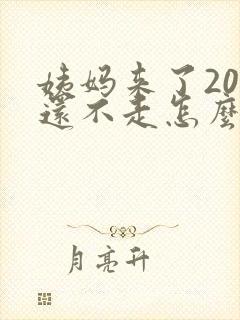 姨妈来了20
還不走怎麼
月亮升